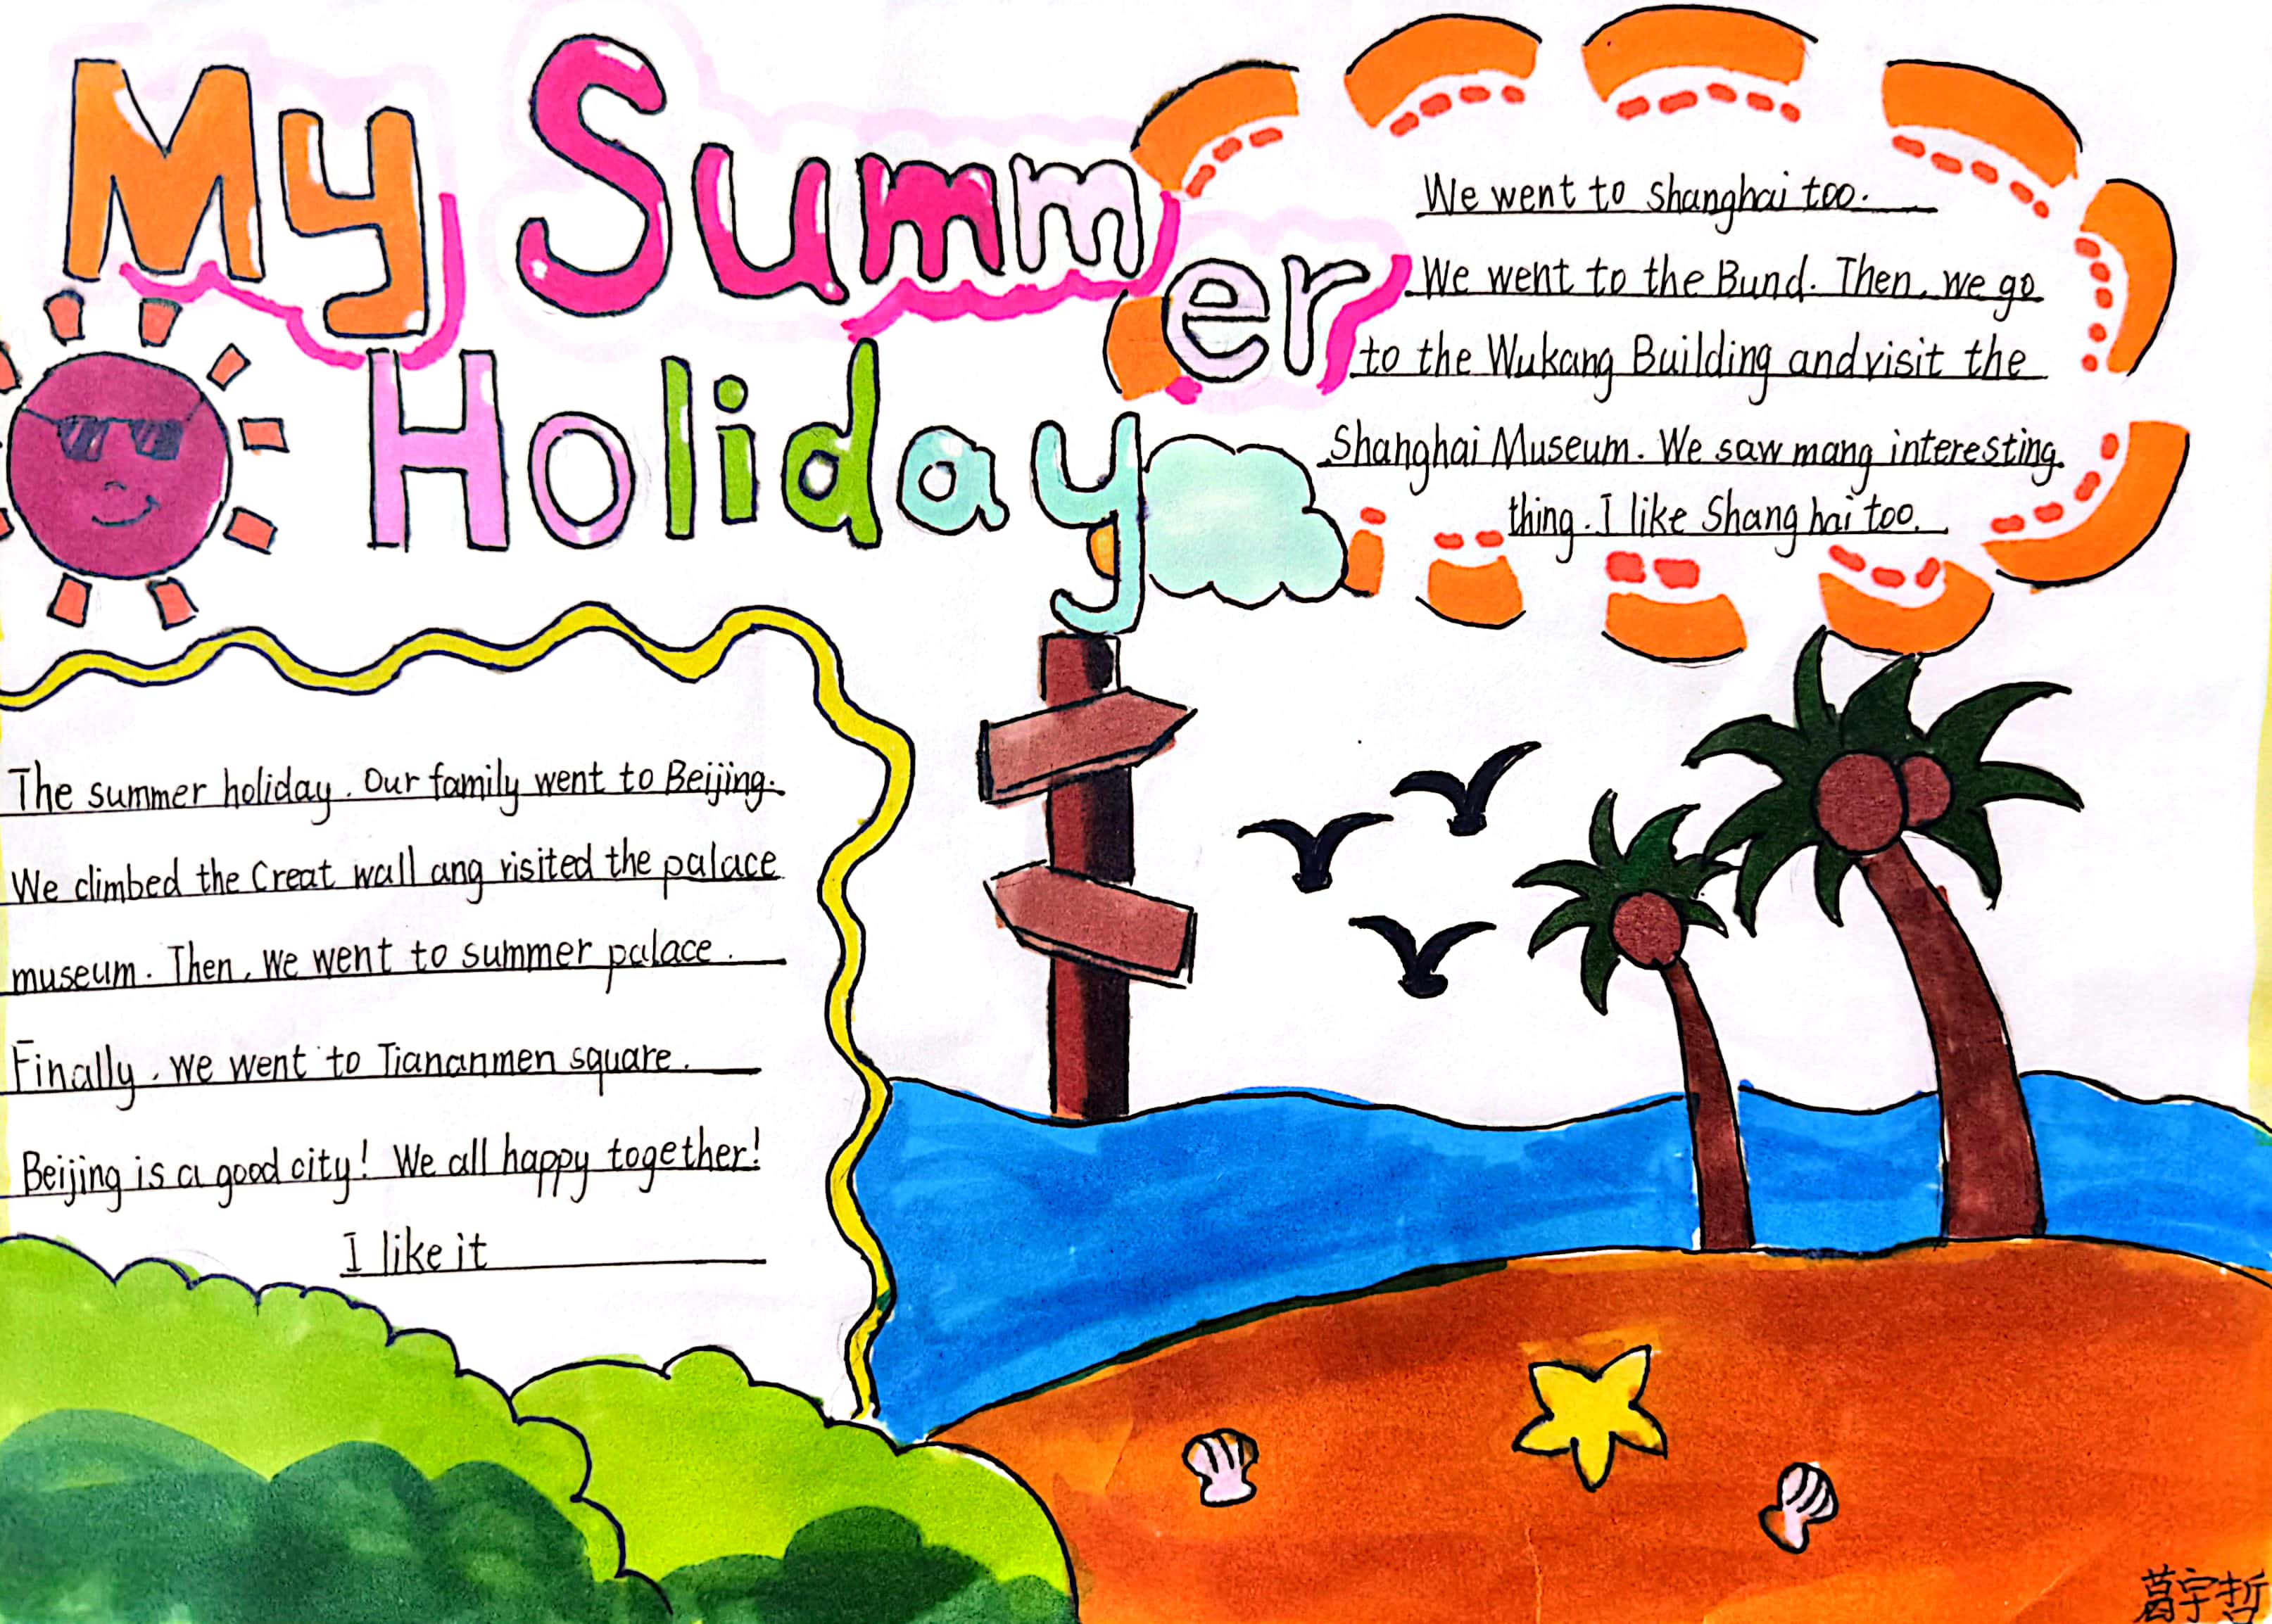 My Summer
Holiday
We went to shanghai too.
We went to the Bund. Then, we go
to the Wukang Building and visit the
Shanghai Museum. We saw mang interesting
thing. I like Shang hai too.
The summer holiday. Our family went to Beijing.
We climbed the Creat wall ang visited the palace
museum. Then, we went to summer palace.
Finally, we went to Tiananmen square.
Beijing is a good city! We all happy together!
I like it
葛宇哲